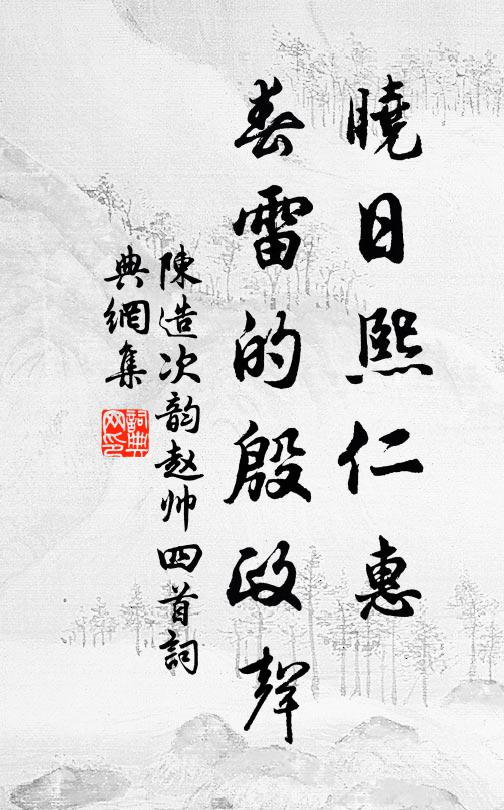 曉日熙仁惠
春雷的殷政聲
陳造次韵赵帅四首詞
典網集
詞典
网印